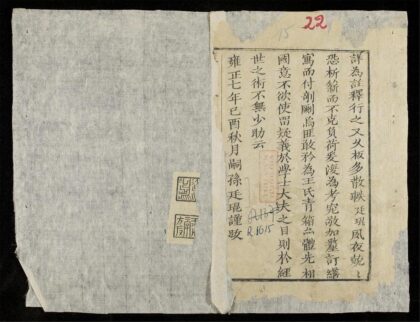 詳為註釋行之又久板多散軼廷琨夙夜兢兢
恐析薪而不克負荷爰復為考究敬加摹訂繕
寫而付剞劂焉匪敢矜為王氏青箱亦體先相
國意不欲使留疑義於學士大夫之目則於經
世之術不無少助云
雍正七年己酉秋月嗣孫廷琨謹跋
22
15
R.1615